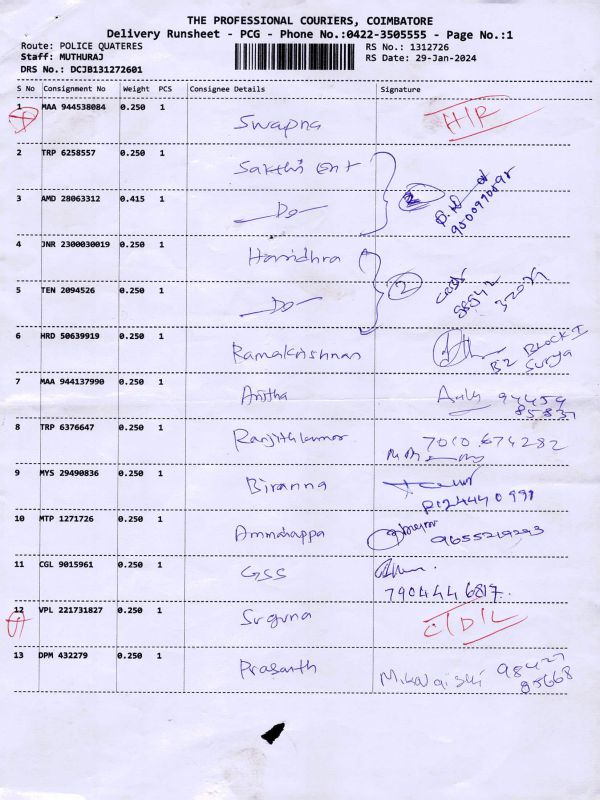 THE PROFESSIONAL COURIERS, COIMBATORE
Delivery Runsheet - PCG - Phone No.:0422-3505555 - Page No.:1
Route: POLICE QUATERES
RS No.: 1312726
Staff: MUTHURAJ
RS Date: 29-Jan-2024
DRS No.: DCJB131272601
S No Consignment No Weight PCS Consignee Details Signature
1 MAA 944538084 0.250 1 Swapna H/R
2 TRP 6258557 0.250 1 Sakthi Ent
3 AMD 28063312 0.415 1 Do 2
4 JNR 2300030019 0.250 1 Harridhra
5 TEN 2094526 0.250 1 Do 2
6 HRD 50639919 0.250 1 Ramakrishnan B2 Block-I Surya
7 MAA 944137990 0.250 1 Anitha 94459 85837
8 TRP 6376647 0.250 1 Ranjithkumar 7010 674282
9 MYS 29490836 0.250 1 Biranna
10 MTP 1271726 0.250 1 Ammahappa 9655219293
11 CGL 9015961 0.250 1 GSS 7904446817
12 VPL 221731827 0.250 1 Suguna C/D/L
13 DPM 432279 0.250 1 Prasanth 98427 85668